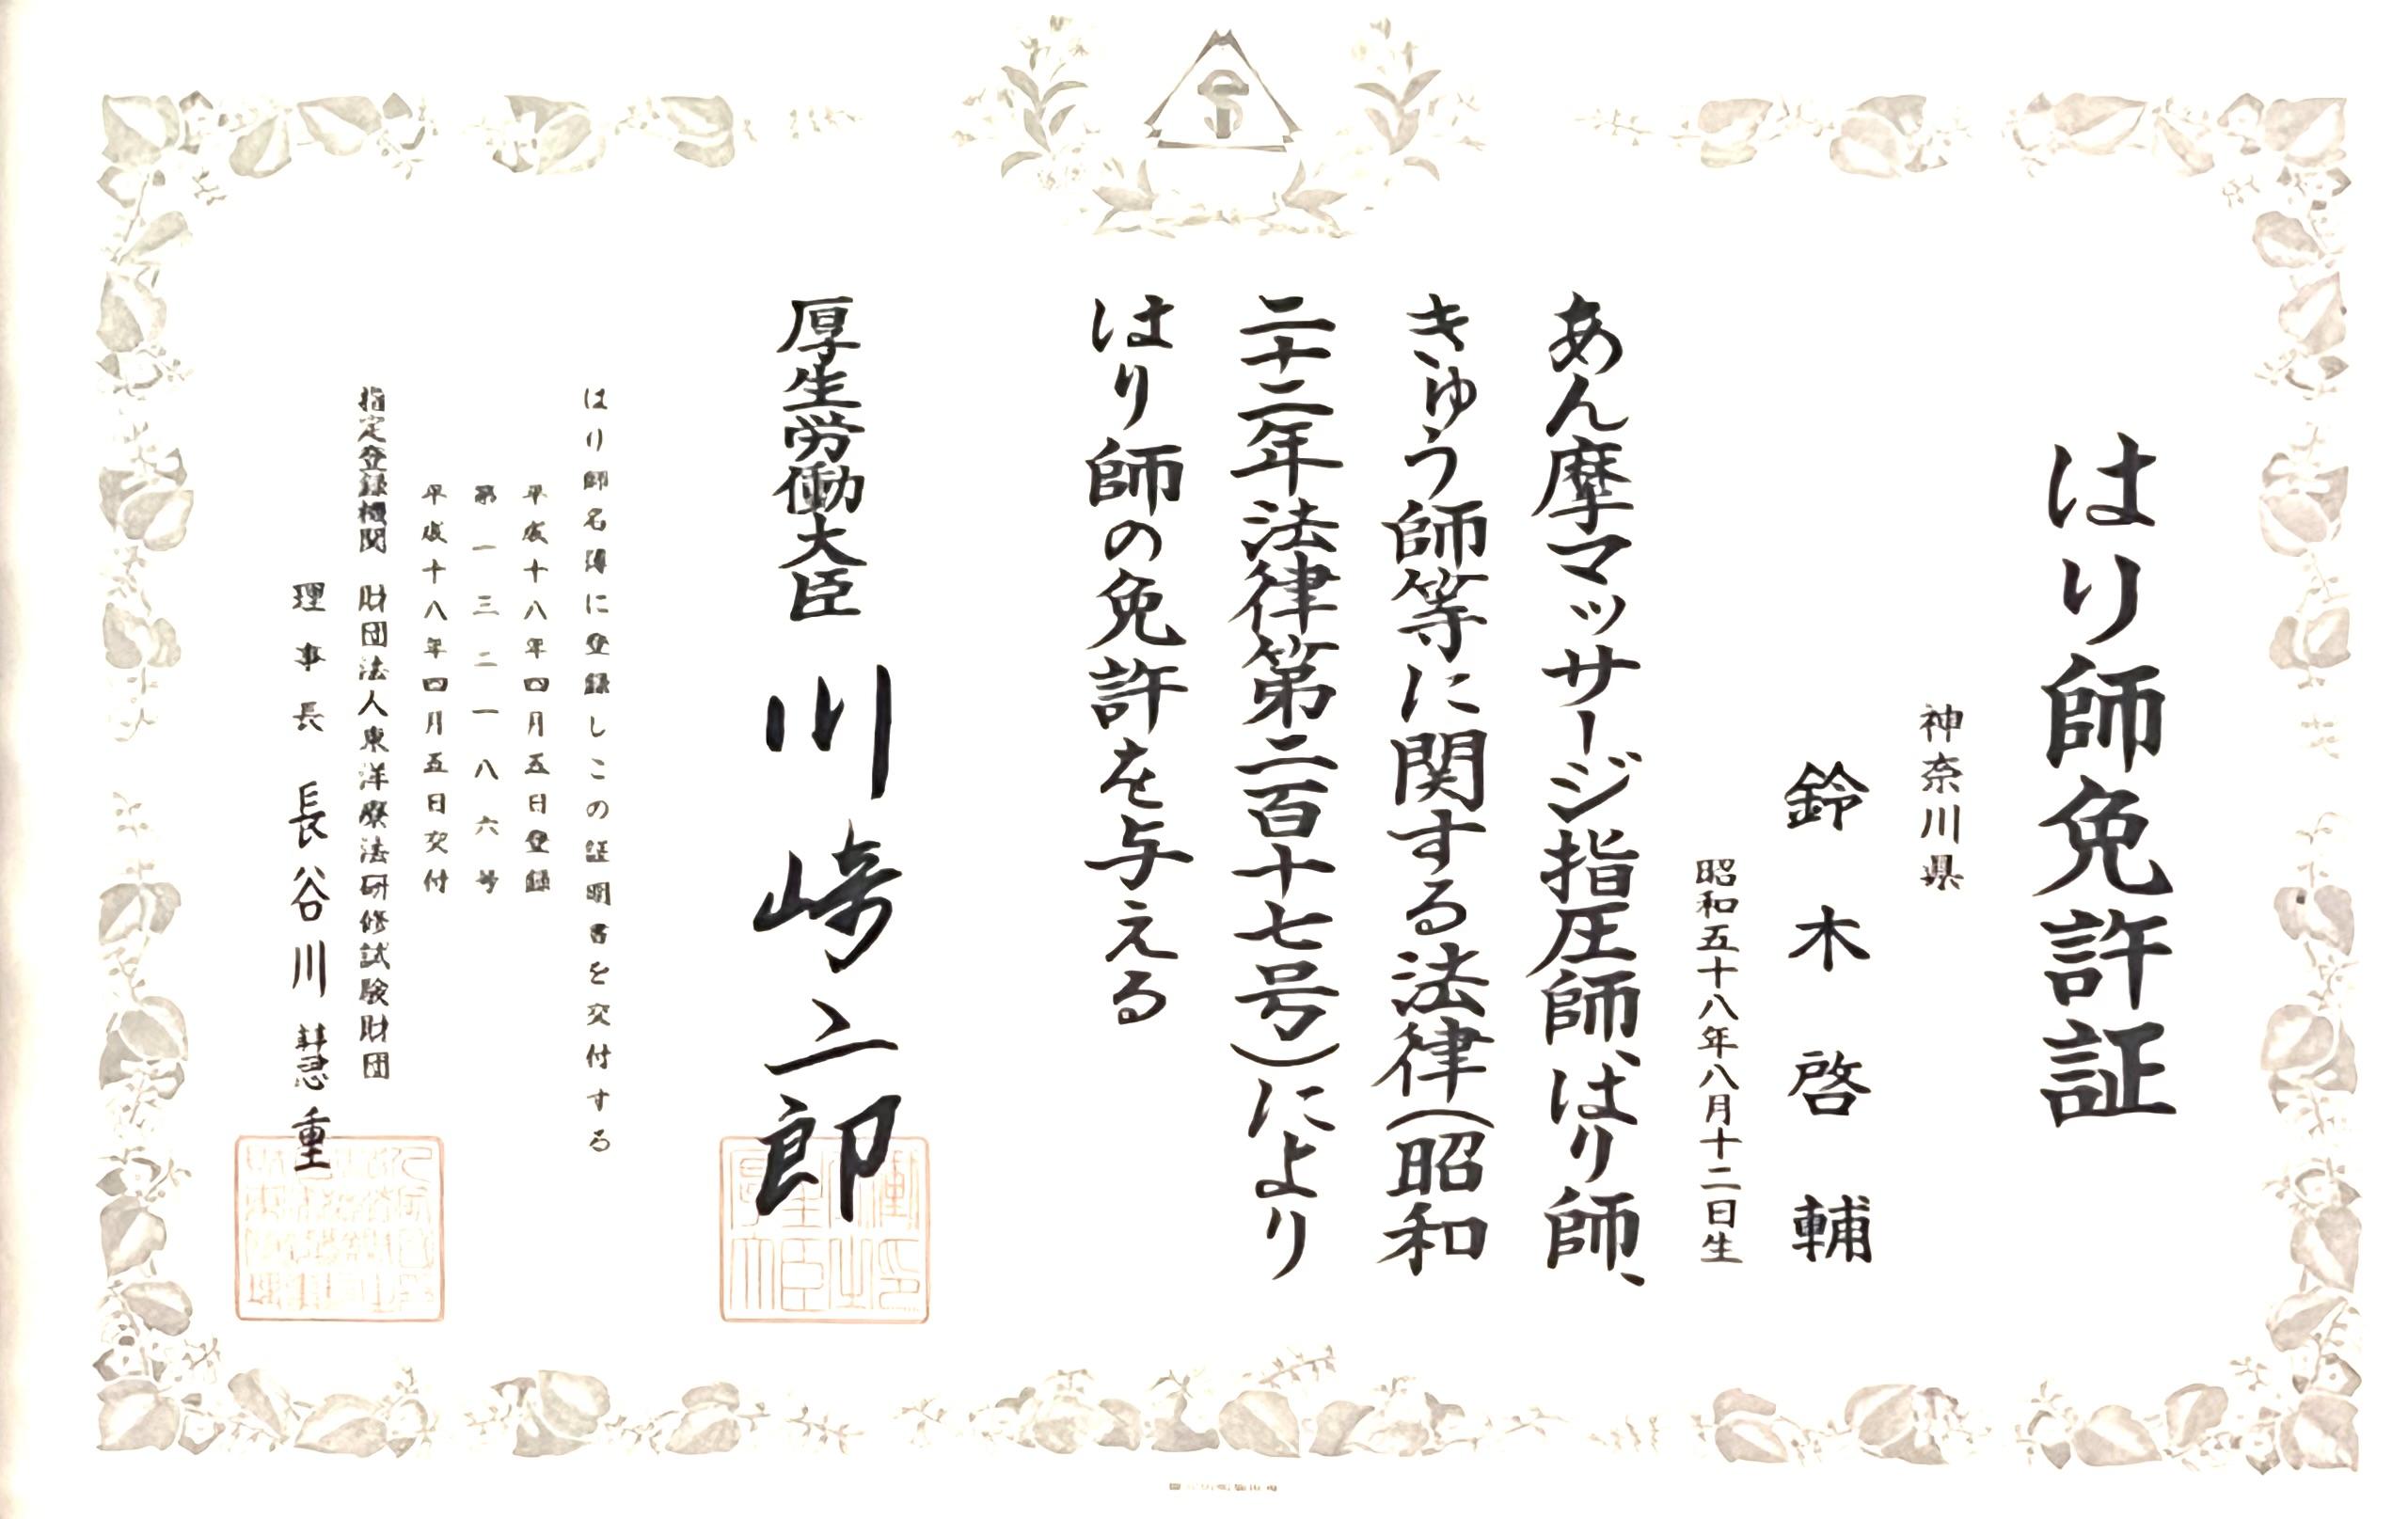 はり師免許証
神奈川県
鈴木啓輔
昭和五十八年八月十二日生
あん摩マッサージ指圧師、はり師、
きゅう師等に関する法律(昭和
二十二年法律第二百十七号)により
はり師の免許を与える
厚生労働大臣 川崎二郎
はり師名簿に登録しこの証明書を交付する
平成十八年四月五日登録
第一三二一八六号
平成十八年四月五日交付
指定登録機関 財団法人東洋療法研修試験財団
理事長 長谷川慧重